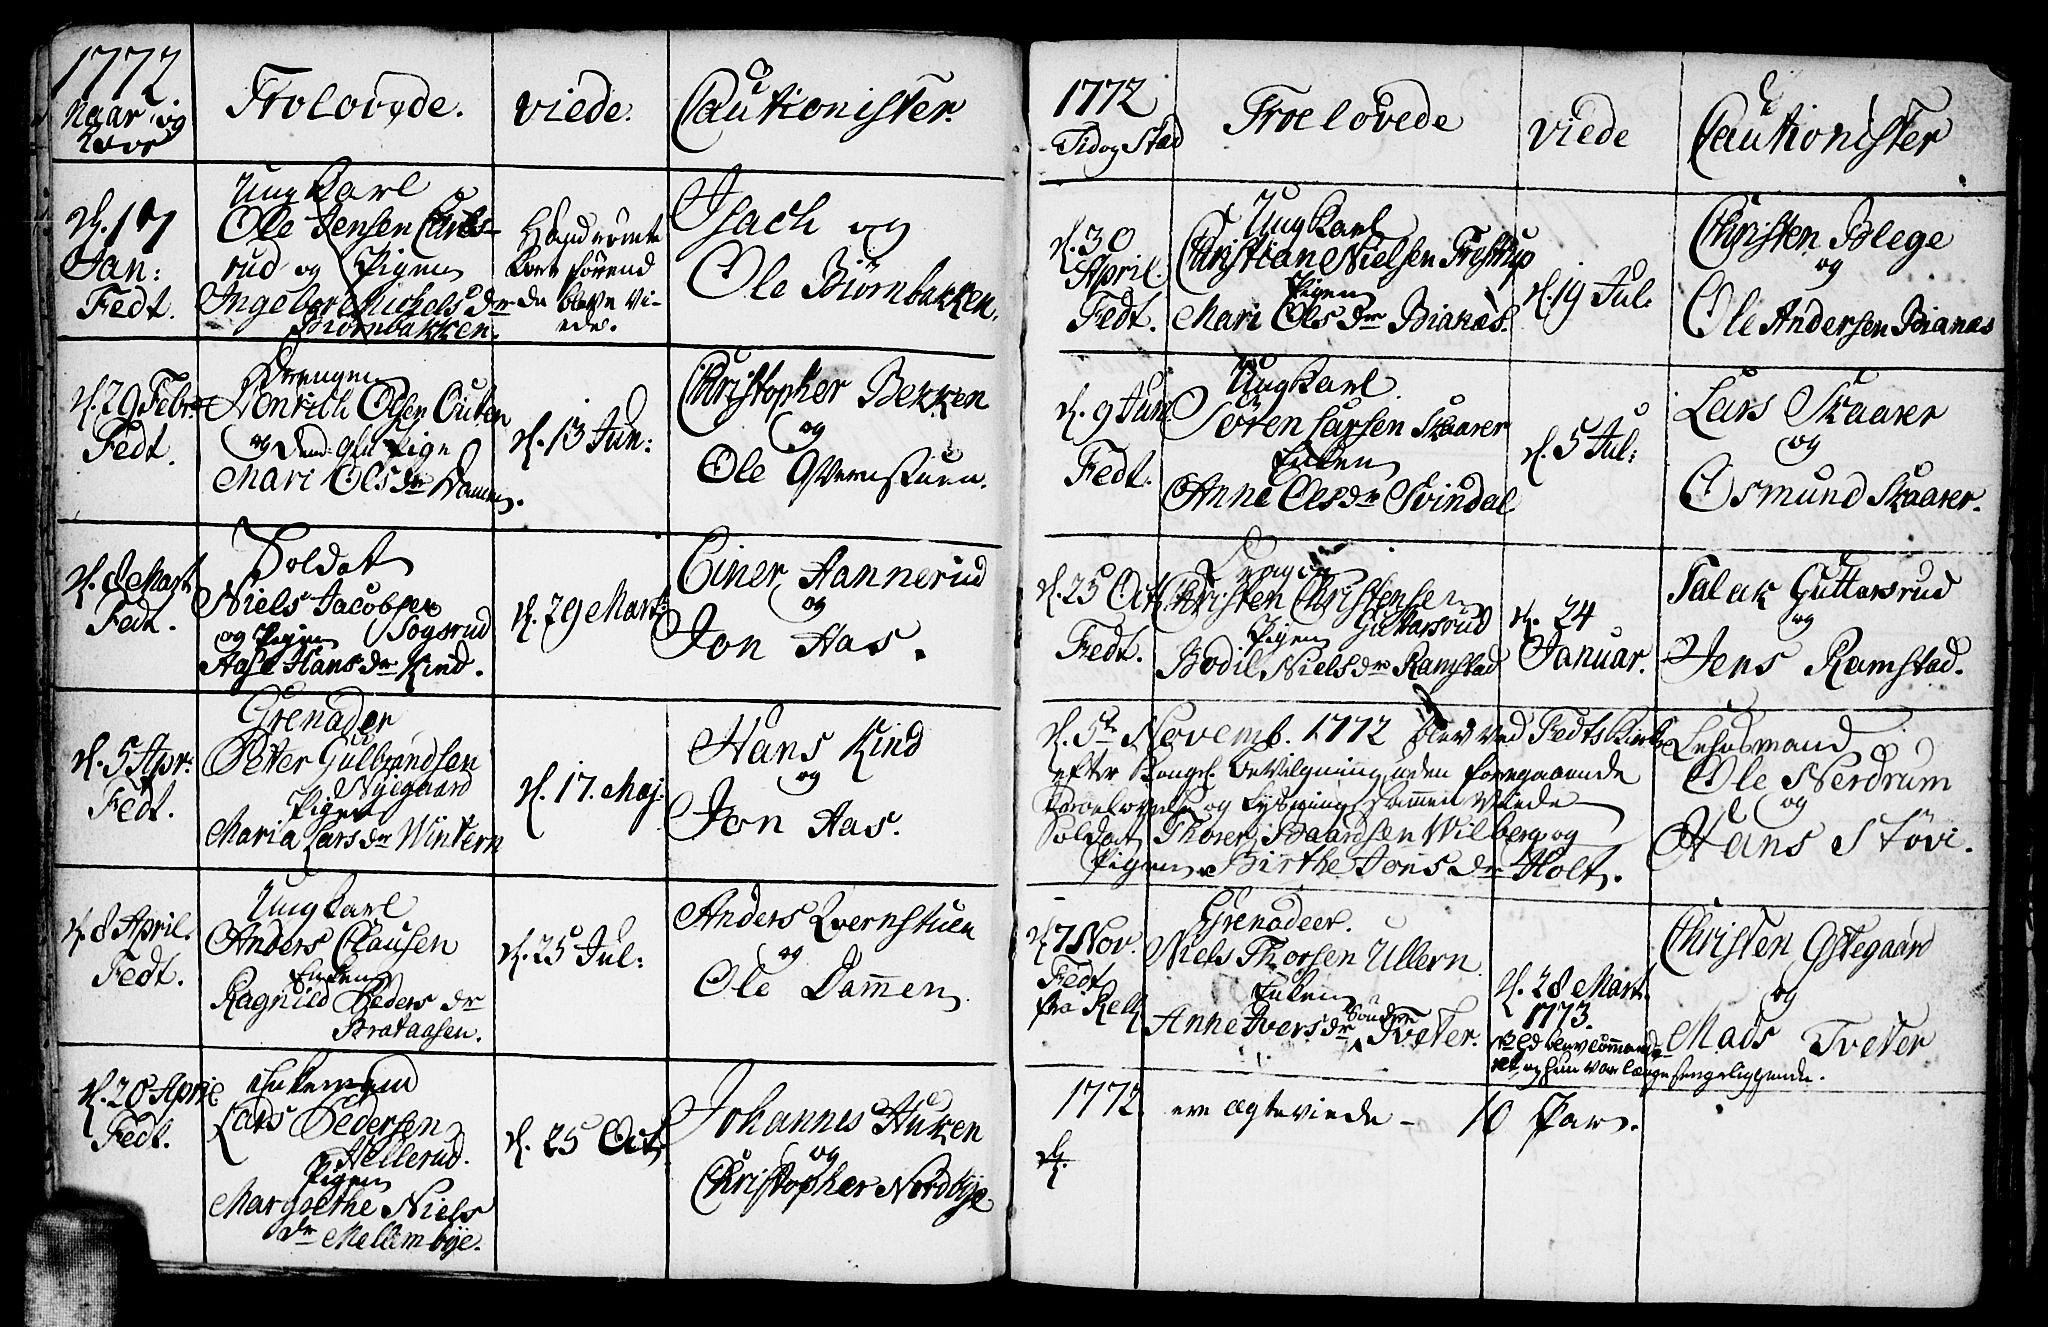 1772
Naar og
Trolovede.
viede.
Cautionister.
d. 17
Jan:
Fedt.
Ung Karl
Ole Jensen
rud og Pigen
Ingebor Michels dr
Biørnbakken.
Haand
kort førend
de bleve vi-
ede.
Isach og
Ole Biørnbakken.
d. 29 Febr.
Fedt.
Drengen
Henrich Olsen
og Pige
Mari Ols dr Damen.
d. 13 Jun:
Christopher Bekken
og
Ole Qvernstuen.
d. 8 Mart.
Fedt.
Soldat
Niels Jacobsen
og Pigen Sogsrud
Aase Hans dr Kind.
d. 29 Mart:
Einer Hannerud
og
Jon Aas.
d. 5 Apr:
Fedt.
Grenader
Peter Gulbrandsen
Nygaard
Pigen
Maria Lars dr Wintern
d. 17. Maj.
Hans Kind
og
Jon Aas.
d. 8 April.
Fedt.
Ung Karl
Anders Clausen
Enken
Ragnild Peders dr
Brataasen.
d. 25 Jul:
Anders Qvernstuen
og
Ole Dammen.
d. 20 April
Fedt.
Enkemand
Lars Pedersen
Hellerud.
Pigen
Margrethe Niels
dr Mellembye.
d. 25 Oct.
Johannes Auken
og
Christopher Nordbye.
1772
Tid og Stæd
Troelovede
viede
Cautionister
d. 30
April.
Fedt.
Ung Karl
Christian Nielsen Frestrup
Pigen
Mari Ols dr Bianæs.
d. 19 Jul:
Christen Blege
og
Ole Andersen Bianæs
d. 9 Jun.
Fedt.
Ung Karl
Søren Larsen Skaarer
Enken
Anne Ols dr Svindal
d. 5 Jul:
Lars Skaarer
og
Osmund Skaarer.
d. 25 Oct.
Fedt.
Dragon
Christen Christensen
Pigen Guttarsrud
Bodil Niels dr Ramstad
d. 24
Januar.
Talak Guttarsrud
og
Jens Ramstad.
d. 5te Novemb. 1772 blev ved Fedts Kirke
efter Kongel. bevilgning uden foregaaende
Troelovelse og Lysning sammen viede
Soldat Thorer Baardsen Wilberg og
Pigen Birthe Jons dr Holt.
Lehnsmand
Ole Nerdrum
og
Hans Støvi.
d. 7 Nov.
Fedt
Grenadeer.
Niels Thorsen Ullern
Enken
Anne Ivers dr Søndre Tveter.
d. 28 Mart.
1773.
og hun var længe sengeliggende.
Christen Østegaard
og
Mads Tveter
1772. ere ægteviede - 10 Par.
d.